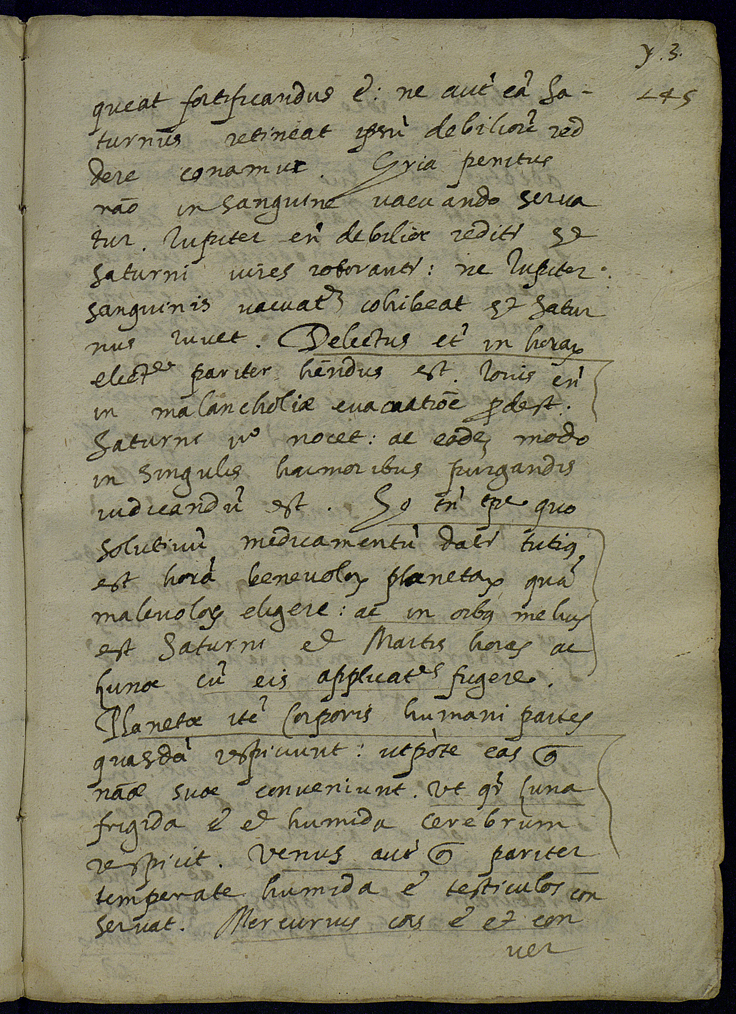 y. 3.
245
queat fortificandus ē: ne aut̄ eā Sa-
turnus retineat ipsū debiliorē red
dere conamur. Gr̄ia penitus
nāo in sanguine vacuando serva
tur. Iupiter en̄ debilior reditr̄ et
Saturni vires roborantr̄: ne Iupiter
sanguinis vacuat cohibeat et Satur
nus iuvet. Delectus et̄ in horaꝝ
elect pariter hēndus est. Iovis en̄
in malancholiæ evacuatiōe ꝓdest:
Saturni vo nocet: ac eodē modo
in singulis humoribus purgandis
iudicandū est. tn̄ tpe quo
solutivū medicamentū datr̄ tutiq
est horā benevoloꝝ planetaꝝ quā
malevoloꝝ eligere: ac in oibq melius
est Saturni et Martis horas ac
lunæ cū eis applicat fugere.
Planetæ itē corporis humani partes
quasdā respiciunt: utpote eas
nāæ suæ conveniunt. Ut Luna
frigida ē et humida cerebrum
respicit. Venus aut̄ pariter
temperate humida ē testiculos con
servat. Mercurius ē et con
ver